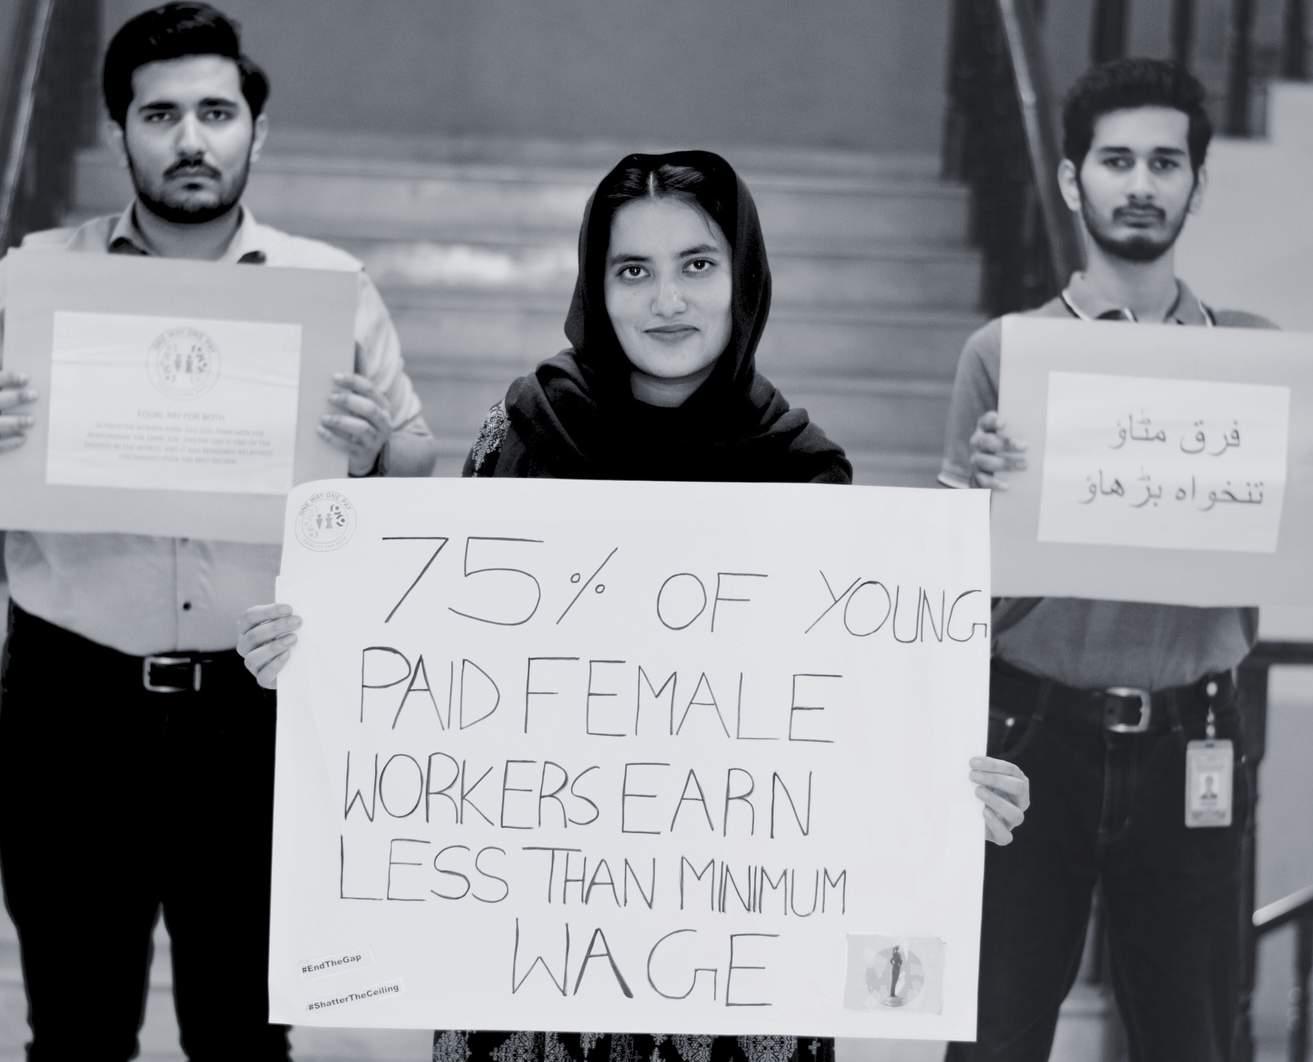 EQUAL PAY FOR BOTH
فرق مٹاؤ
تنخواہ بڑھاؤ
ONE WAY ONE PAY
75% OF YOUNG
PAID FEMALE
WORKERS EARN
LESS THAN MINIMUM
WAGE
#EndTheGap
#ShatterTheCeiling